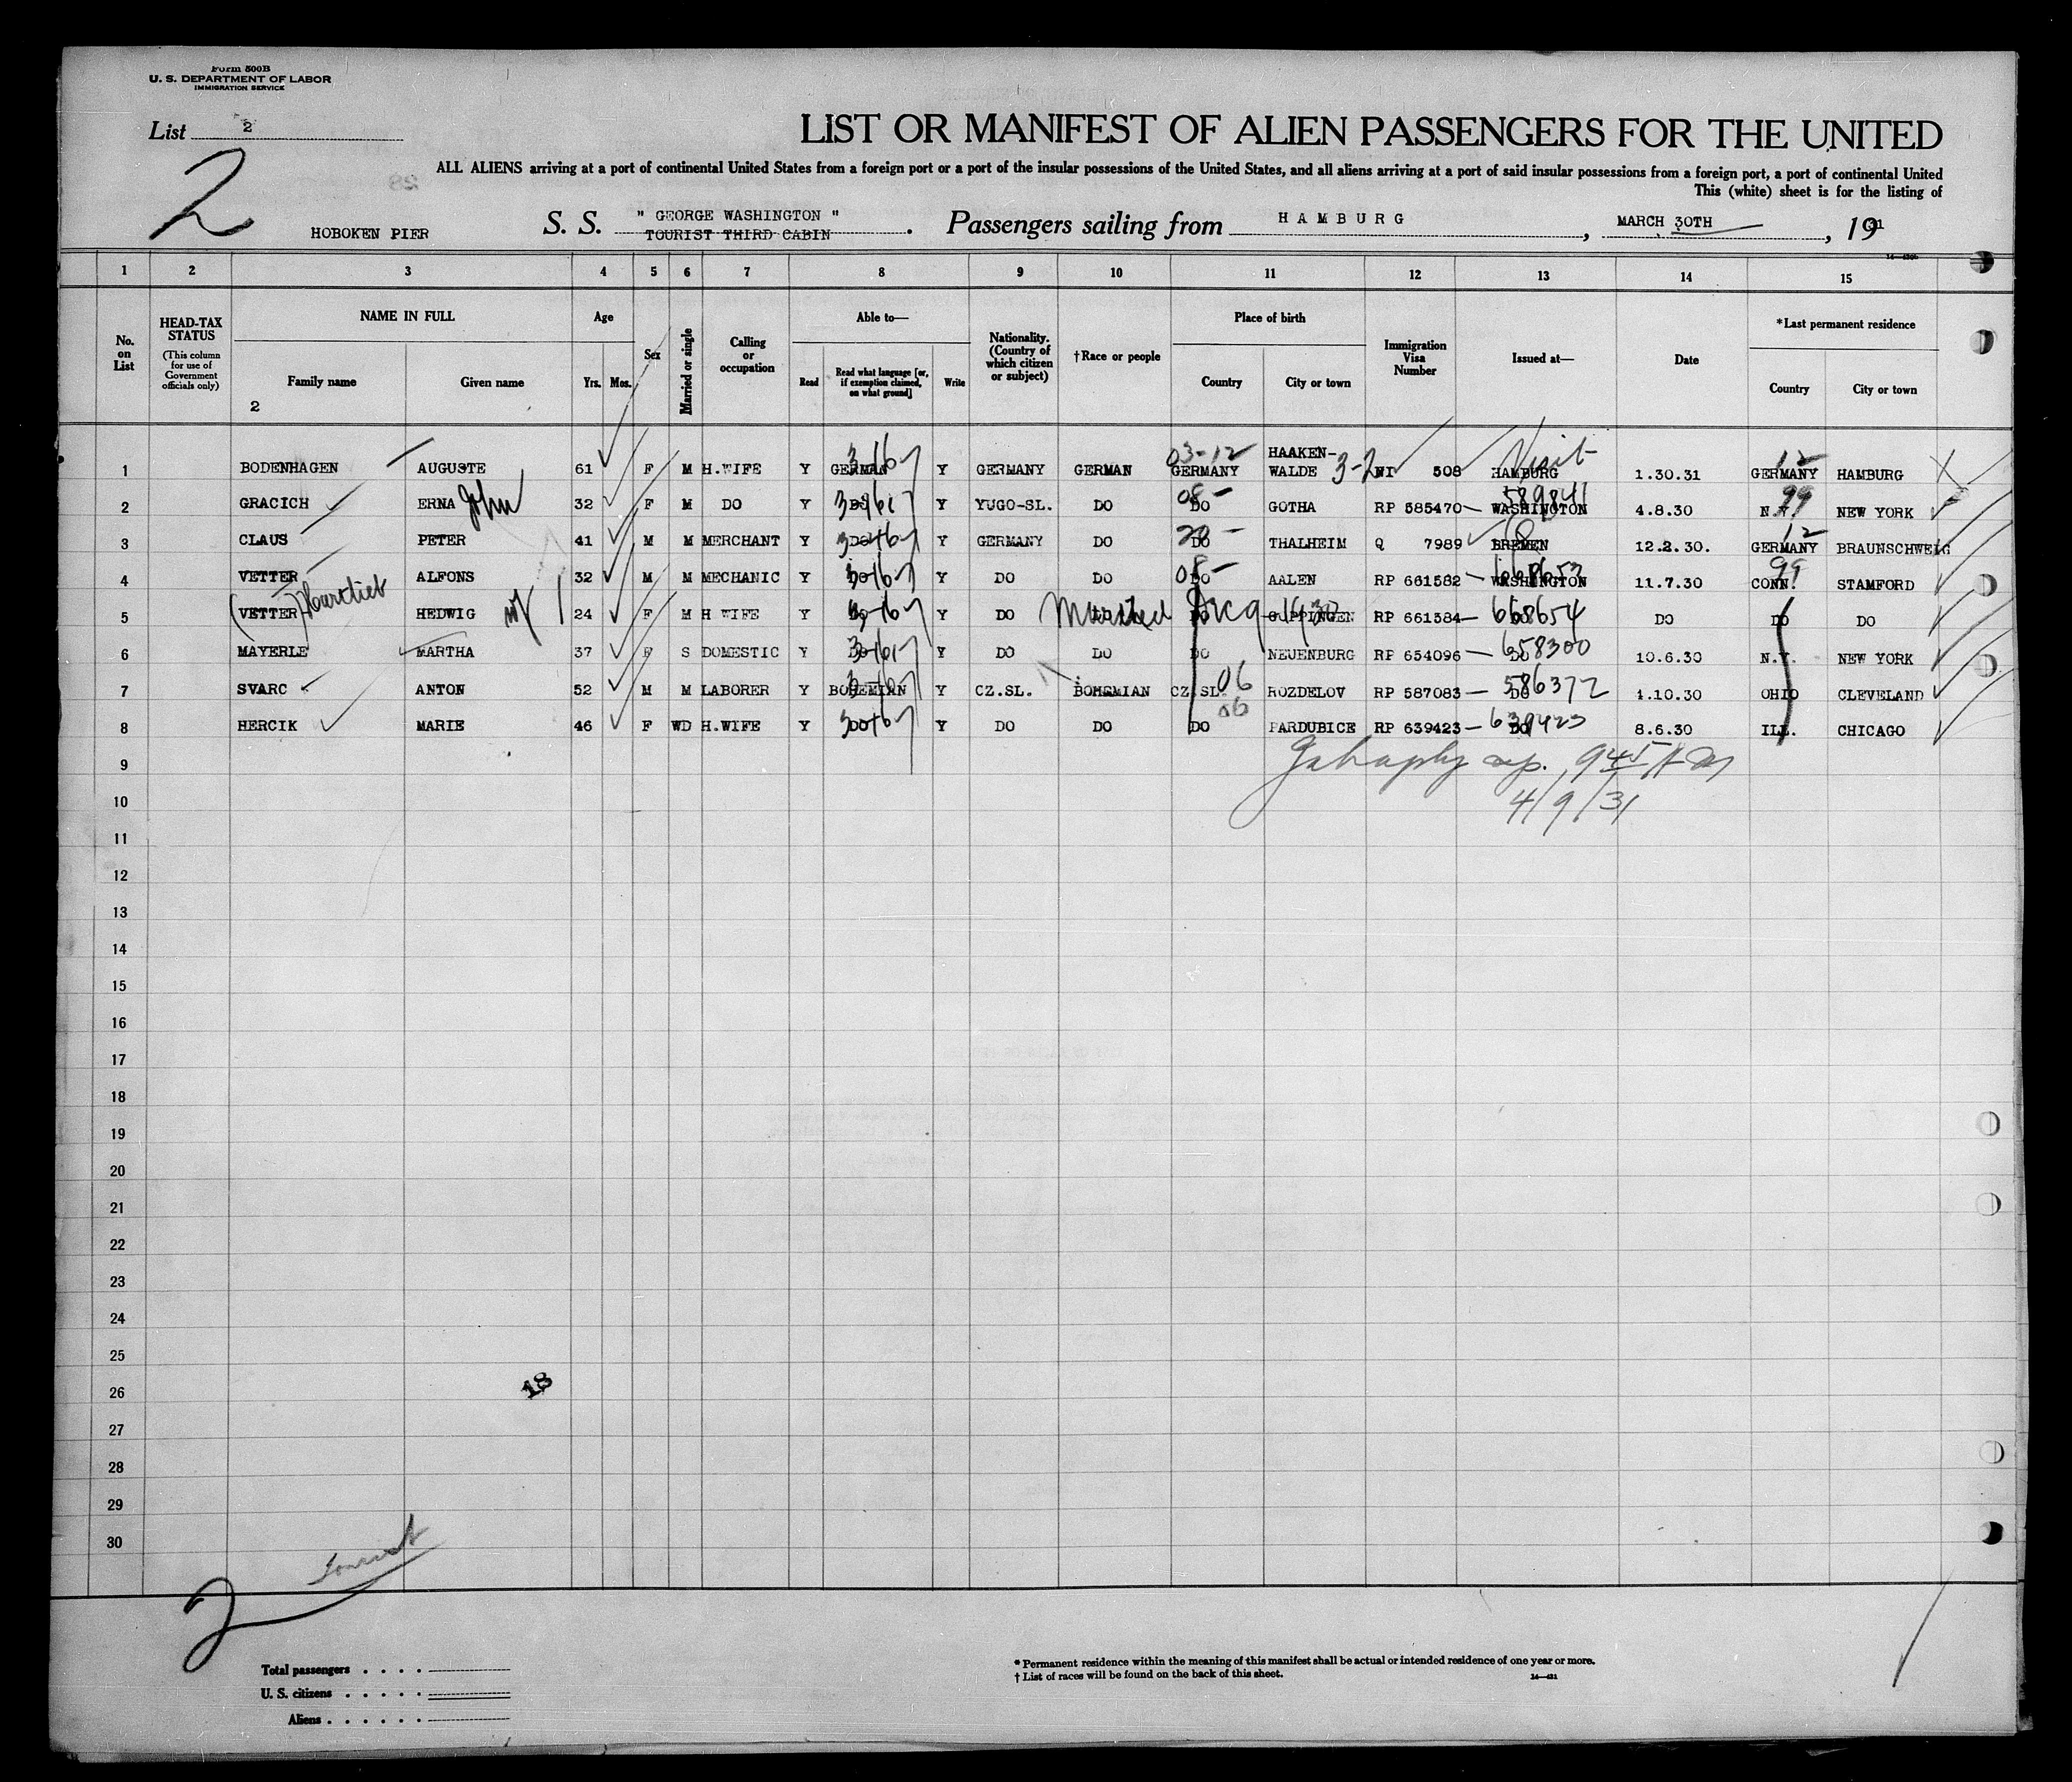 Form 500B
U. S. DEPARTMENT OF LABOR
IMMIGRATION SERVICE
List 2
LIST OR MANIFEST OF ALIEN PASSENGERS FOR THE UNITED
ALL ALIENS arriving at a port of continental United States from a foreign port or a port of the insular possessions of the United States, and all aliens arriving at a port of said insular possessions from a foreign port, a port of continental United
This (white) sheet is for the listing of
2
HOBOKEN PIER S. S. " GEORGE WASHINGTON " Passengers sailing from HAMBURG, MARCH 30TH, 1931
TOURIST THIRD CABIN
1 2 3 4 5 6 7 8 9 10 11 12 13 14 15
No. on List
HEAD-TAX STATUS
(This column for use of Government officials only)
NAME IN FULL
Family name
Given name
2
Age
Yrs. Mos.
Sex
Married or single
Calling or occupation
Able to—
Read
Read what language [or, if exemption claimed, on what ground]
Write
Nationality. (Country of which citizen or subject)
†Race or people
Place of birth
Country
City or town
Immigration Visa Number
Issued at—
Date
*Last permanent residence
Country
City or town
03-12 Visit 12
1 BODENHAGEN AUGUSTE 61 F M H.WIFE Y GERMAN Y GERMANY GERMAN GERMANY HAAKEN-WALDE 3-2 508 HAMBURG 1.30.31 GERMANY HAMBURG
08 589841 99
2 GRACICH ERNA John 32 F M DO Y DO Y YUGO-SL. DO DO GOTHA RP 585470 WASHINGTON 4.8.30 N.Y. NEW YORK
20 12
3 CLAUS PETER 41 M M MERCHANT Y DO Y GERMANY DO DO THALHEIM Q 7989 BREMEN 12.2.30. GERMANY BRAUNSCHWEIG
08 668653 99
4 VETTER ALFONS 32 M M MECHANIC Y DO Y DO DO DO AALEN RP 661582 WASHINGTON 11.7.30 CONN. STAMFORD
5 (VETTER) HEDWIG 24 F M H WIFE Y DO Y DO Married GÖPPINGEN RP 661584 668654 DO DO DO DO
6 MAYERLE MARTHA 37 F S DOMESTIC Y DO Y DO DO DO NEUENBURG RP 654096 658300 DO 10.6.30 N.Y. NEW YORK
7 SVARC ANTON 52 M M LABORER Y BOHEMIAN Y CZ.SL. BOHEMIAN CZ.SL. 06 ROZDELOV RP 587083 586372 DO 4.10.30 OHIO CLEVELAND
8 HERCIK MARIE 46 F WD H.WIFE Y DO Y DO DO DO 06 PARDUBICE RP 639423 639423 DO 8.6.30 ILL. CHICAGO
9
4/9/31
10
11
12
13
14
15
16
17
18
19
20
21
22
23
24
25
26 18
27
28
29
30
2
Total passengers
U. S. citizens
Aliens
* Permanent residence within the meaning of this manifest shall be actual or intended residence of one year or more.
† List of races will be found on the back of this sheet.